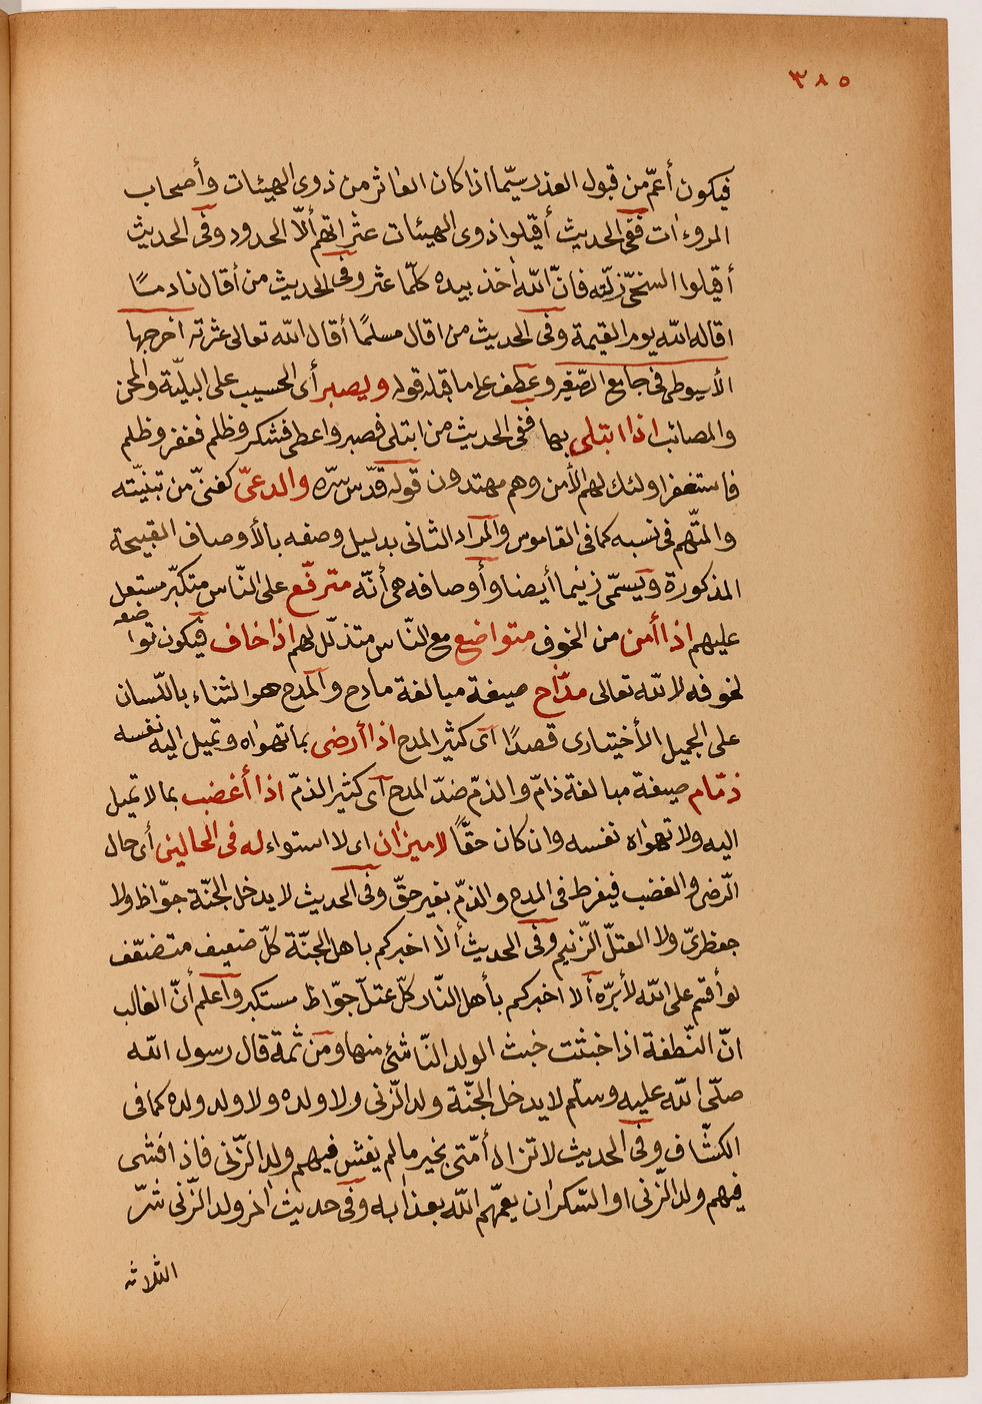 ٣٨٥
فيكون أعمّ من قبول العذر سيّما اذا كان العاثر من ذوى الهيئات وأصحاب
المروءات ففى الحديث أقيلوا ذوى الهيئات عثراتهم ألّا الحدود وفى الحديث
أقيلوا السخىّ زلّته فانّ اللّه أخذ بيده كلّما عثر وفى الحديث من أقال نادمًا
اقاله اللّه يوم القيمة وفى الحديث من اقال مسلمًا أقال اللّه تعالى عثرته اخرجها
الأسيوطى فى جامع الصّغير وعطف على ما قبله قوله ويصبر أى الحسيب على البليّة والمحن
والمصائب اذا ابتلى بها ففى الحديث من ابتلى فصبر واعطى فشكر وظلم فغفر وظلم
فاستغفر اولئك لهم الأمن وهم مهتدون قوله قدّس سرّه والدعىّ كغنىّ من تبنّيته
والمتّهم فى نسبه كما فى القاموس والمراد الثانى بدليل وصفه بالأوصاف القبيحة
المذكورة ويسمّى زنيما أيضا وأوصافه هى أنّه مترفّع على النّاس متكبّر مستعل
عليهم اذا أمن من الخوف متواضع مع النّاس متذلّل لهم اذا خاف فيكون تواضعه
لخوفه لا للّه تعالى مدّاح صيغة مبالغة مادح والمدح هو الثناء باللّسان
على الجميل الأختيارى قصدًا اى كثير المدح اذا أرضى بما تهواه وتميل اليه نفسه
ذمّام صيغة مبالغة ذامّ والذمّ ضدّ المدح آى كثير الذمّ اذا أغضب بما لا تميل
اليه ولا تهواه نفسه وان كان حقًّا لا ميزان اى لا استواء له فى الحالين أى حال
الرّضى والغضب فيفرط فى المدح والذمّ بغير حقّ وفى الحديث لا يدخل الجنّة جوّاظ ولا
جعظرىّ ولا العتلّ الزّنيم وفى الحديث ألا اخبركم باهل الجنّة كلّ ضعيف متضعّف
لو أقسم على اللّه لأبرّه ألا اخبركم بأهل النّار كلّ عتلّ جوّاظ مستكبر وأعلم أنّ الغالب
انّ النّطفة اذا خبثت خبث الولد النّاشئ منها ومن ثمة قال رسول اللّه
صلّى اللّه عليه وسلّم لا يدخل الجنّة ولد الزّنى ولا ولده ولا ولد ولده كما فى
الكشّاف وفى الحديث لا تزال أمّتى بخير ما لم يفش فيهم ولد الزّنى فاذا افشى
فيهم ولد الزّنى او السّكران يعمّهم اللّه بعذابه وفى حديث أخر ولد الزّنى شرّ
الثلاثة